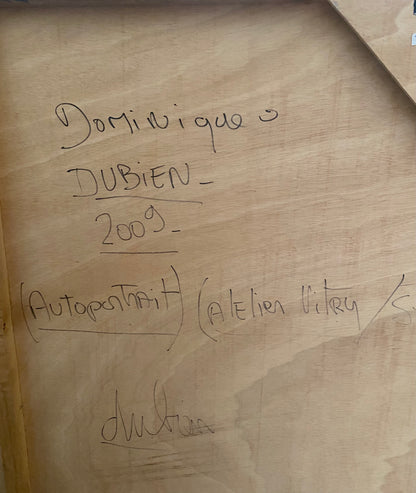 Dominique
DUBiEN_
2009_
(AUTOPORTRAiT) (ATELiER ViTRY /S
dubien